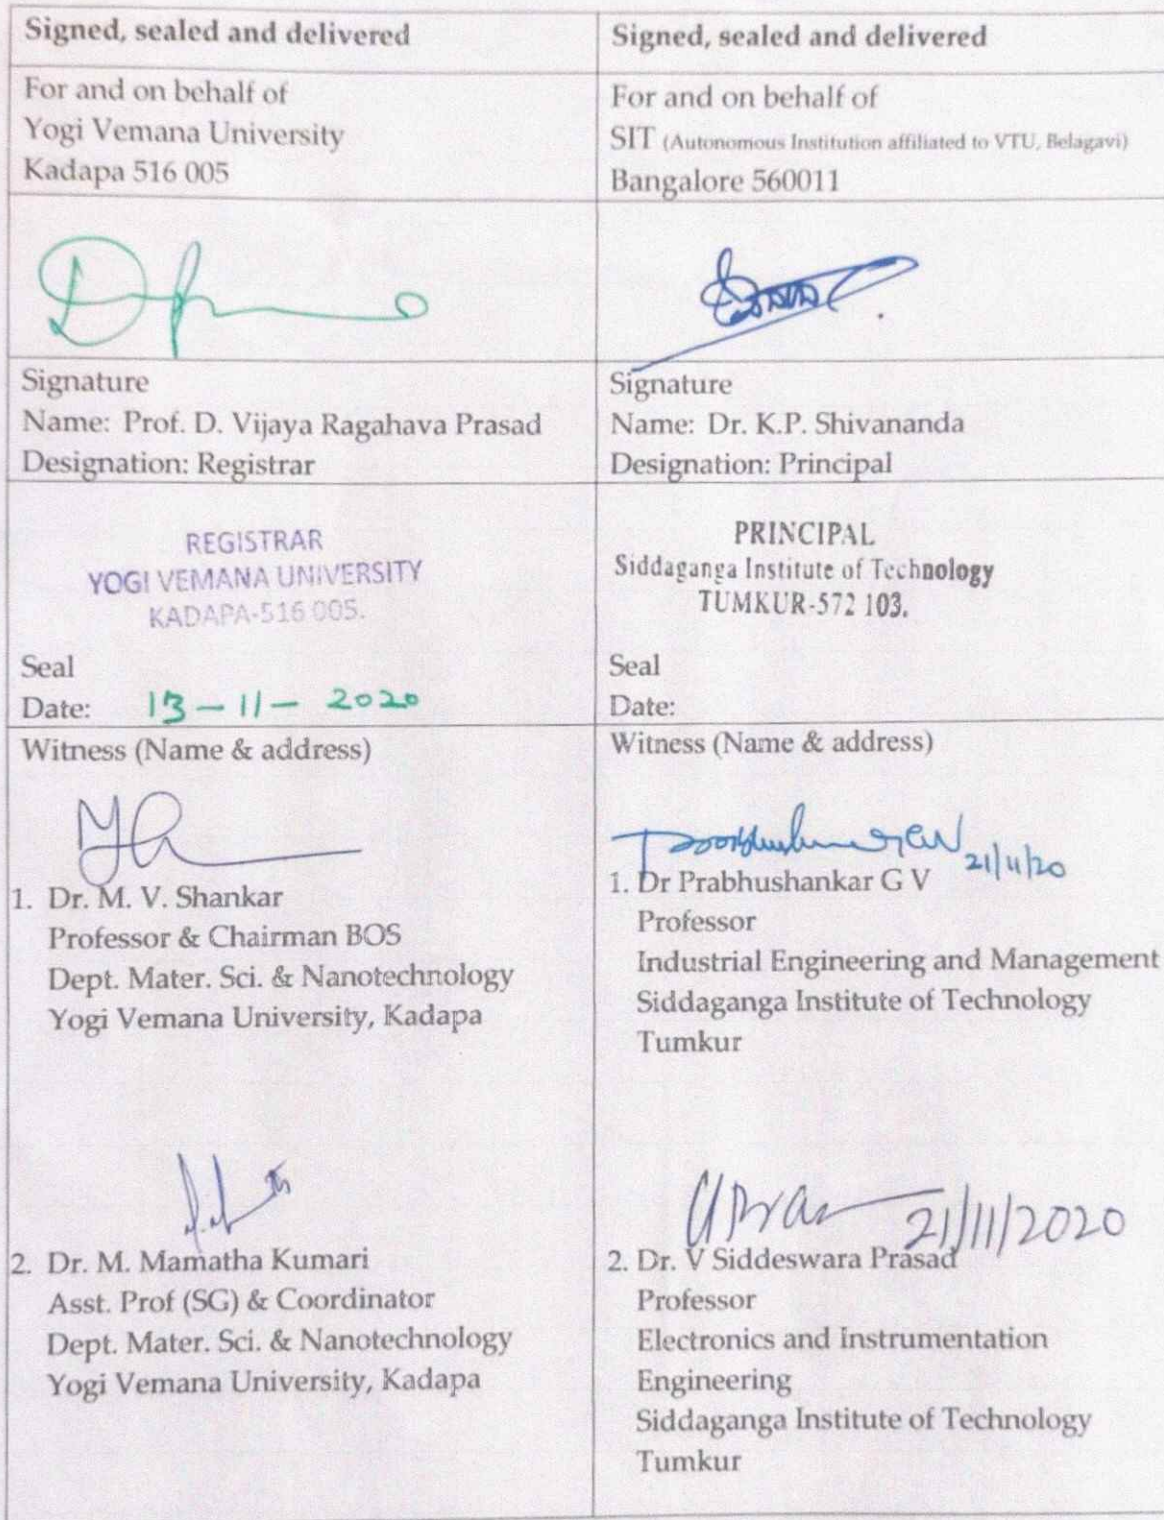 Signed, sealed and delivered
For and on behalf of
Yogi Vemana University
Kadapa 516 005
Signature
Name: Prof. D. Vijaya Ragahava Prasad
Designation: Registrar
REGISTRAR
YOGI VEMANA UNIVERSITY
KADAPA-516 005.
Seal
Date: 13-11-2020
Witness (Name & address)
1. Dr. M. V. Shankar
Professor & Chairman BOS
Dept. Mater. Sci. & Nanotechnology
Yogi Vemana University, Kadapa
2. Dr. M. Mamatha Kumari
Asst. Prof (SG) & Coordinator
Dept. Mater. Sci. & Nanotechnology
Yogi Vemana University, Kadapa
Signed, sealed and delivered
For and on behalf of
SIT (Autonomous Institution affiliated to VTU, Belagavi)
Bangalore 560011
Signature
Name: Dr. K.P. Shivananda
Designation: Principal
PRINCIPAL
Siddaganga Institute of Technology
TUMKUR-572 103.
Seal
Date:
Witness (Name & address)
21/11/20
1. Dr Prabhushankar G V
Professor
Industrial Engineering and Management
Siddaganga Institute of Technology
Tumkur
21/11/2020
2. Dr. V Siddeswara Prasad
Professor
Electronics and Instrumentation
Engineering
Siddaganga Institute of Technology
Tumkur